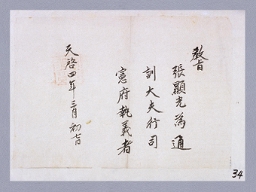 教旨
張顯光為通
訓大夫行司
憲府執義者
天啓四年三月初日
34